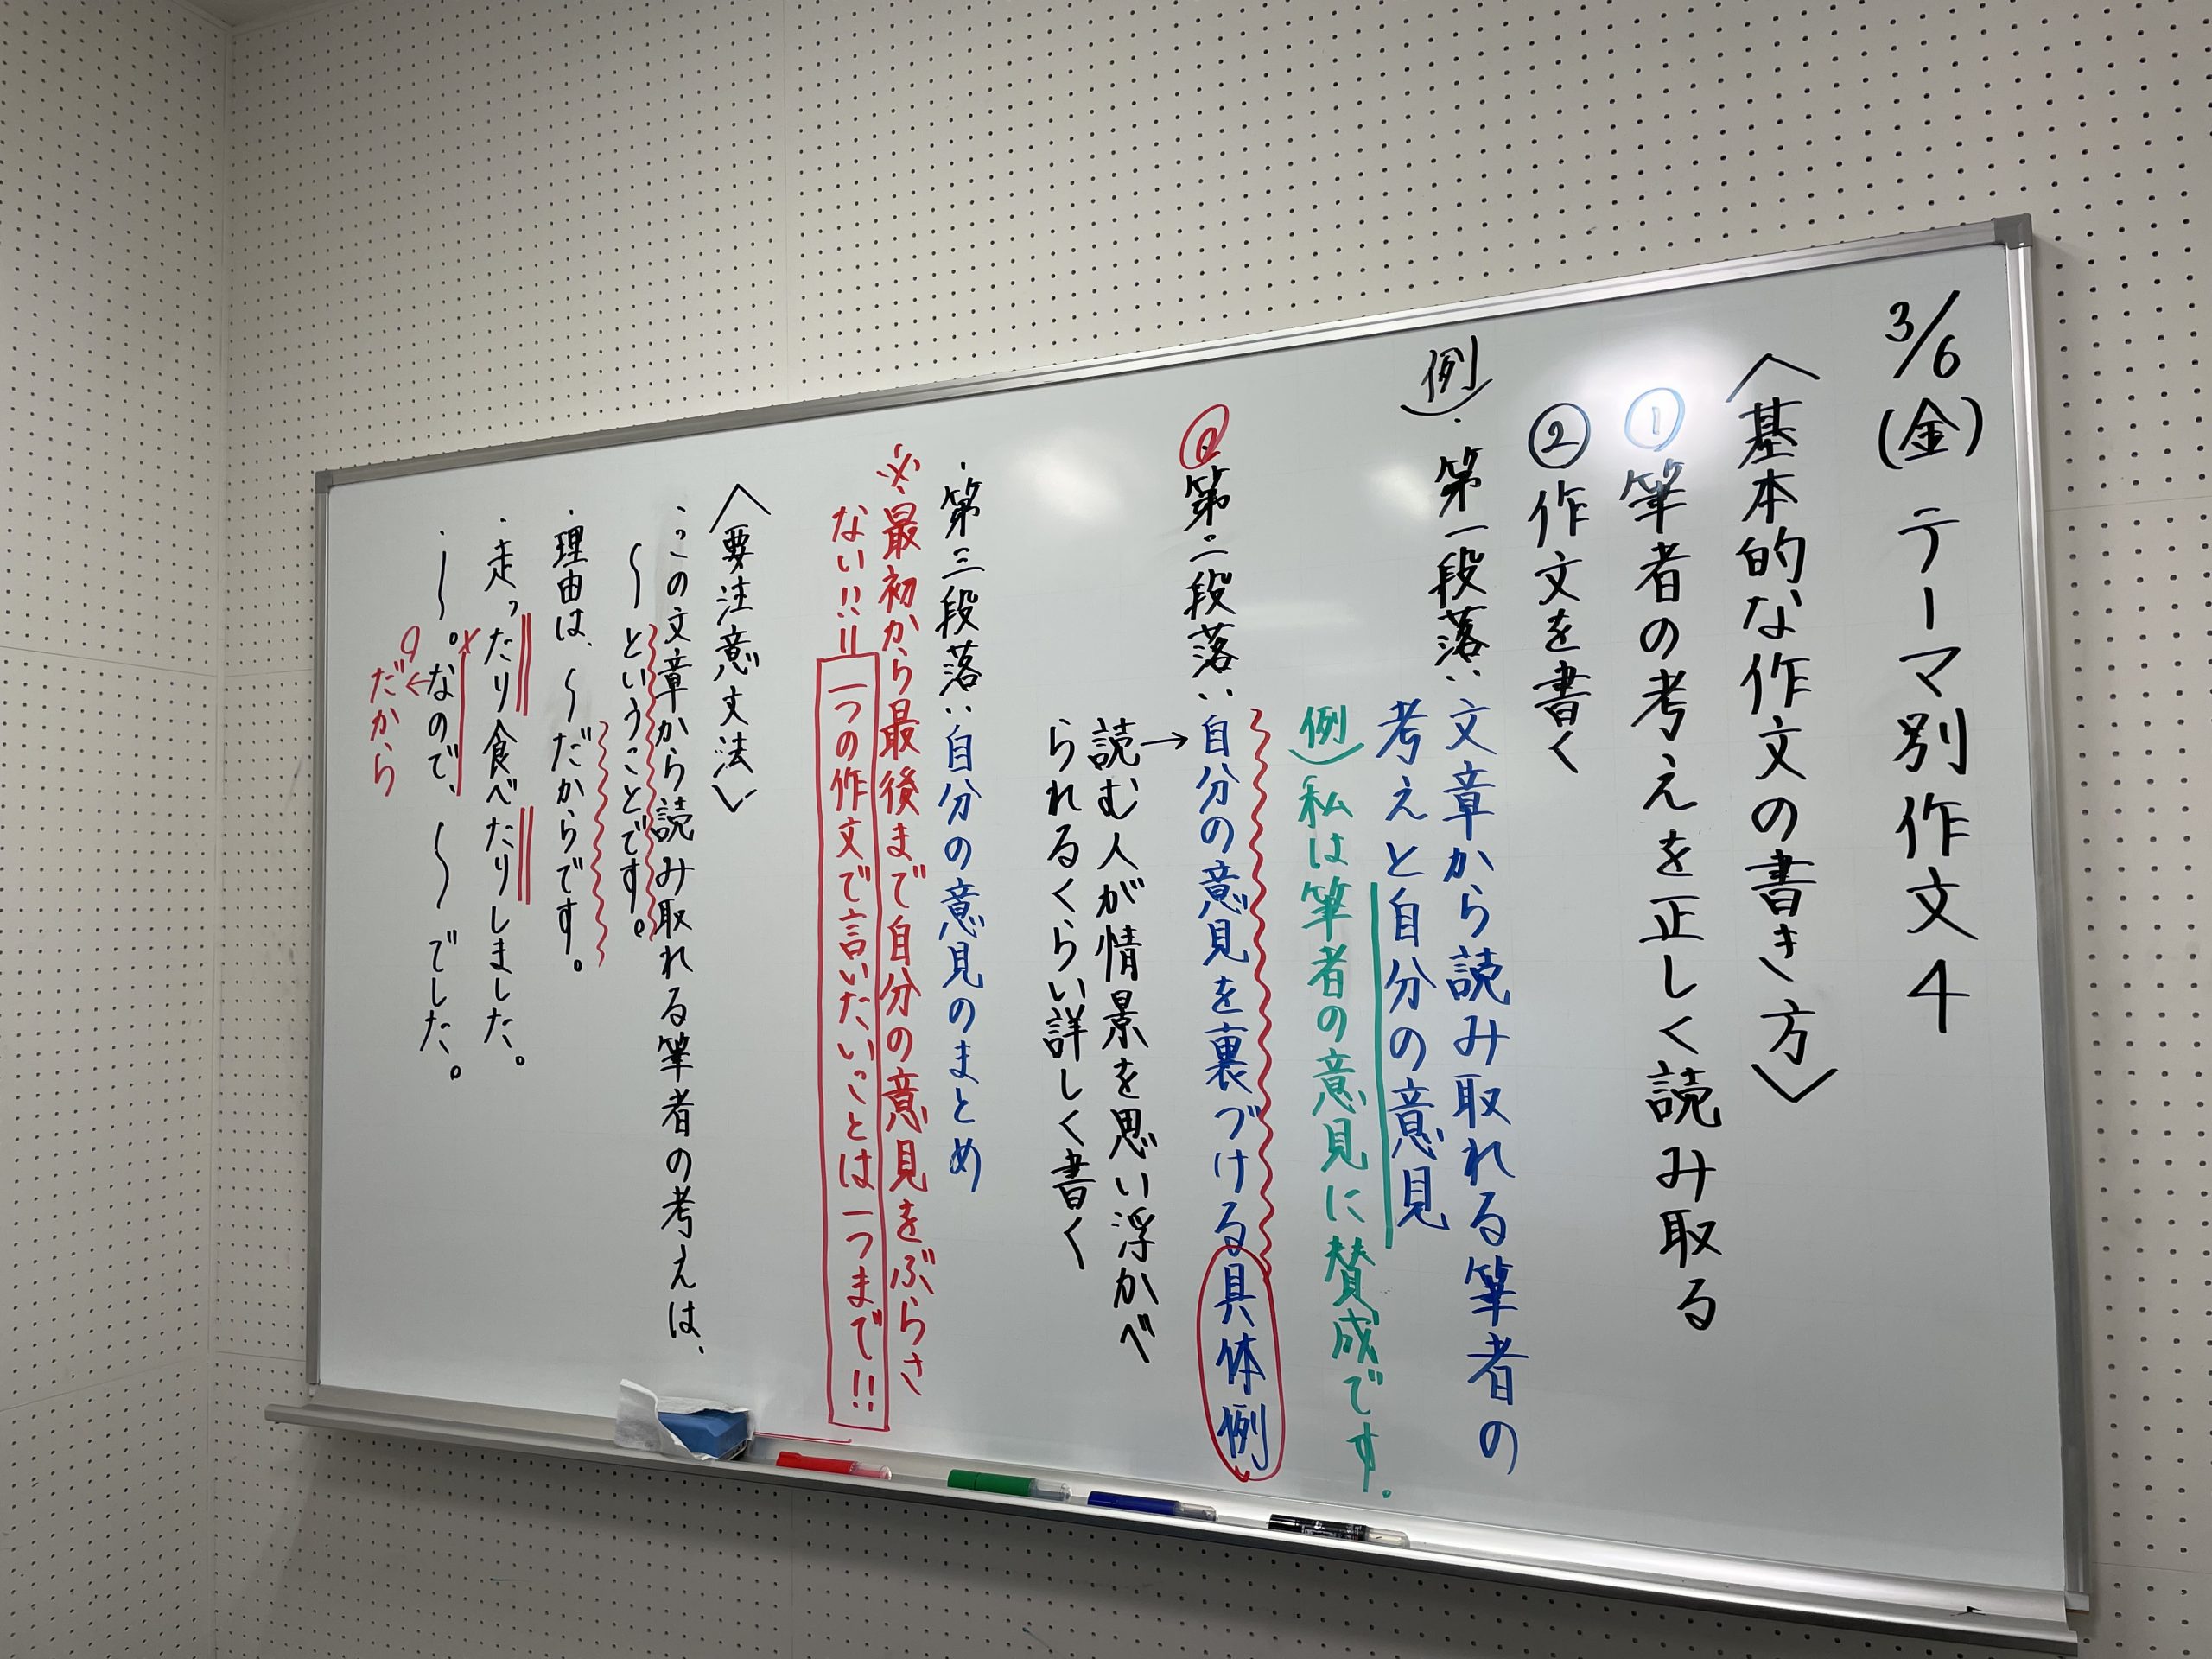 3/6(金) テーマ別作文4
〈基本的な作文の書き方〉
①筆者の考えを正しく読み取る
②作文を書く
例)・第一段落:文章から読み取れる筆者の
考えと自分の意見
例)私は筆者の意見に賛成です。
◎第二段落:自分の意見を裏づける具体例
→読む人が情景を思い浮かべ
られるくらい詳しく書く
・第三段落:自分の意見のまとめ
※最初から最後まで自分の意見をぶらさ
ない!!=一つの作文で言いたいことは一つまで!!
〈要注意文法〉
・この文章から読み取れる筆者の考えは、
〜ということです。
・理由は、〜だからです。
・走ったり食べたりしました。
・〜。なので、〜でした。
だから